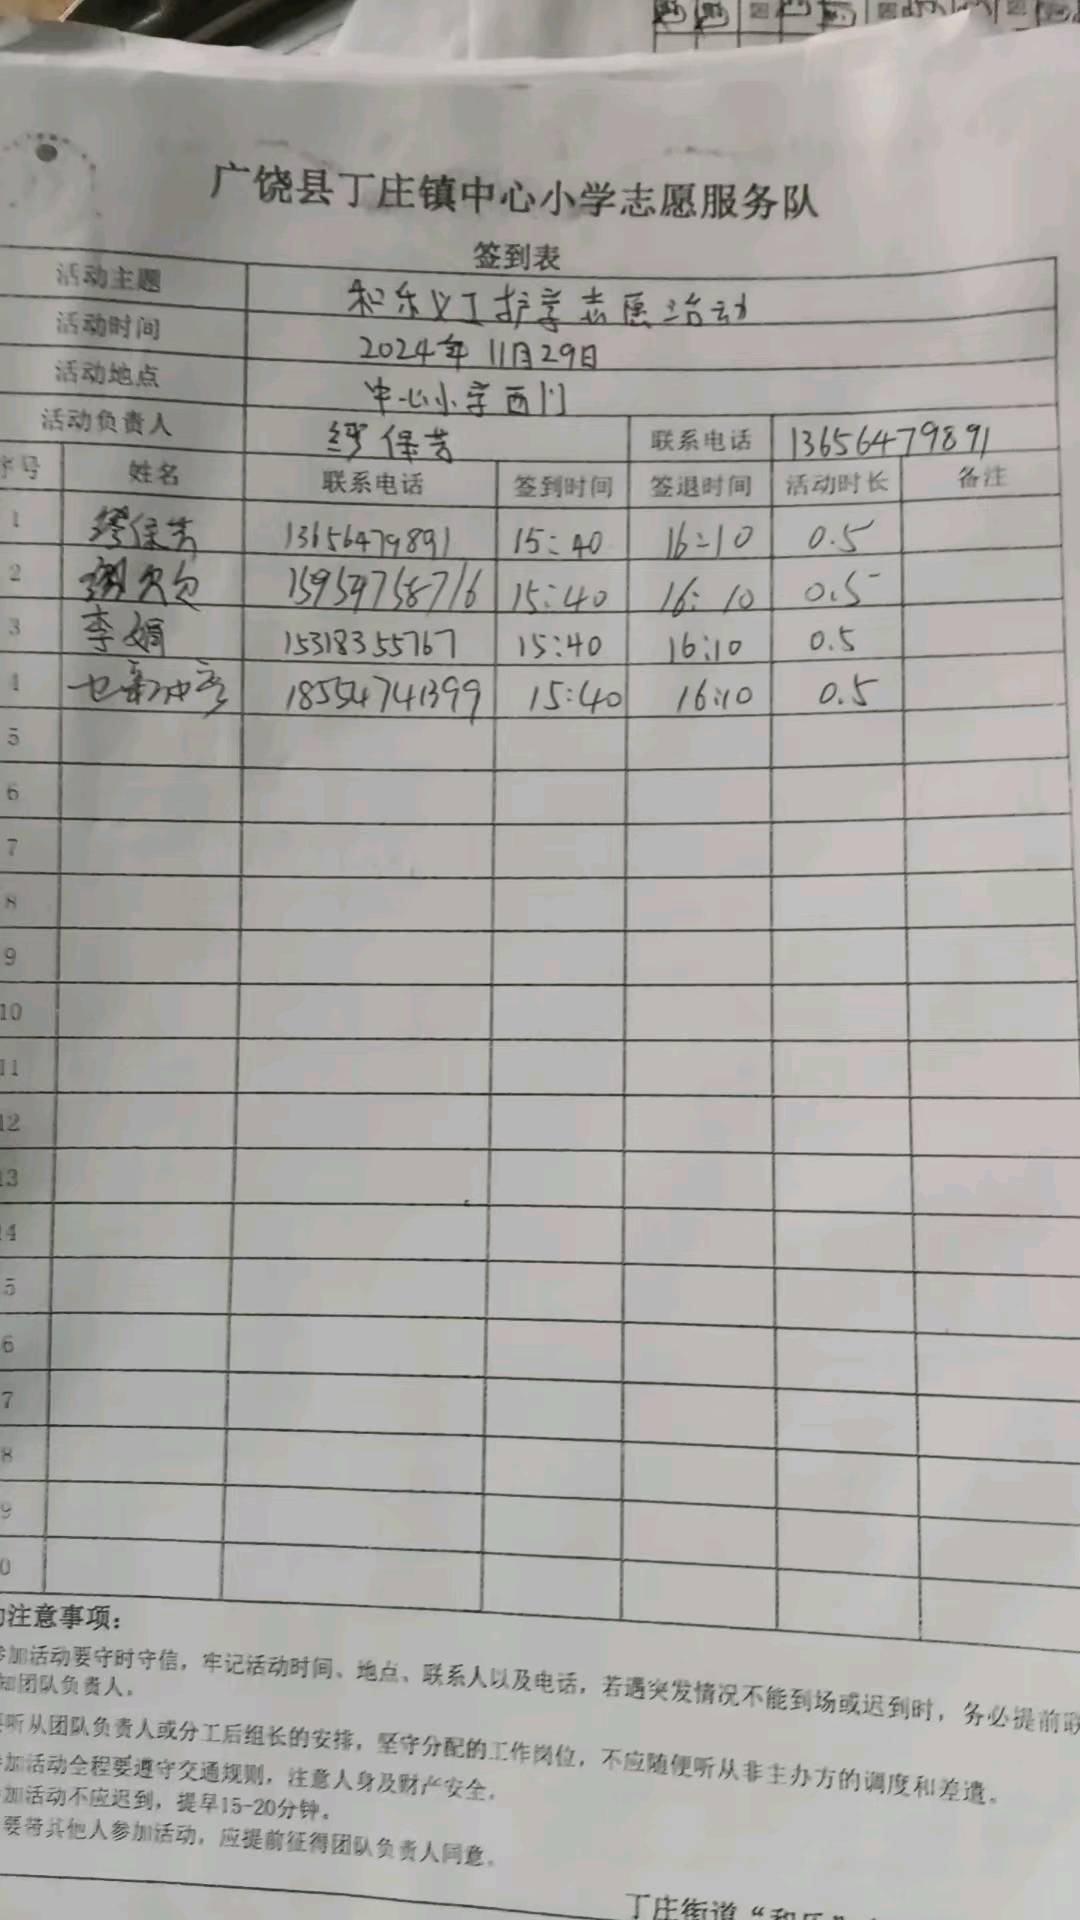 广饶县丁庄镇中心小学志愿服务队
签到表
活动主题 和乐义工护学志愿活动
活动时间 2024年11月29日
活动地点 中心小学西门
活动负责人 保芳 联系电话 13656479891
序号 姓名 联系电话 签到时间 签退时间 活动时长 备注
1 保芳 13656479891 15:40 16:10 0.5
2 15:40 16:10 0.5
3 李娟 15318355767 15:40 16:10 0.5
18554741399 15:40 16:10 0.5
5
6
7
8
9
10
11
12
13
14
5
6
7
8
9
0
注意事项：
参加活动要守时守信，牢记活动时间、地点、联系人以及电话，若遇突发情况不能到场或迟到时，务必提前联
知团队负责人。
听从团队负责人或分工后组长的安排，坚守分配的工作岗位，不应随便听从非主办方的调度和差遣。
加活动全程要遵守交通规则，注意人身及财产安全。
加活动不应迟到，提早15-20分钟。
要带其他人参加活动，应提前征得团队负责人同意。
丁庄街道“和乐”